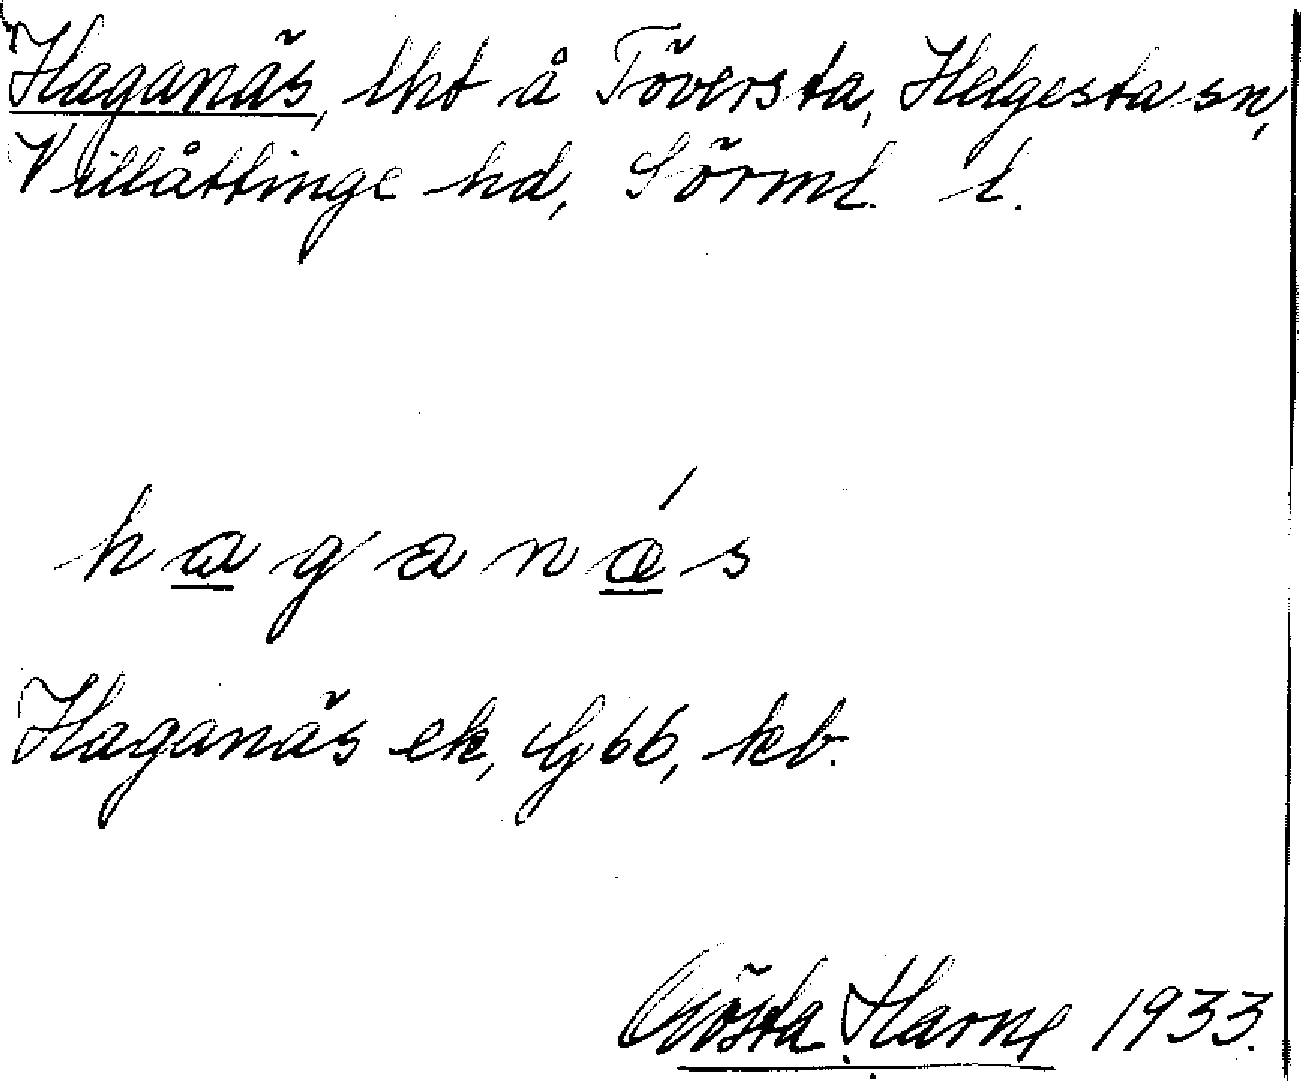 Haganäs, lht å Töversta, Helgesta sn,
Villåttinge hd, Sörml. l.
haganǽs
Haganäs ek, Gg 66, kb.
Gösta Harne 1933.